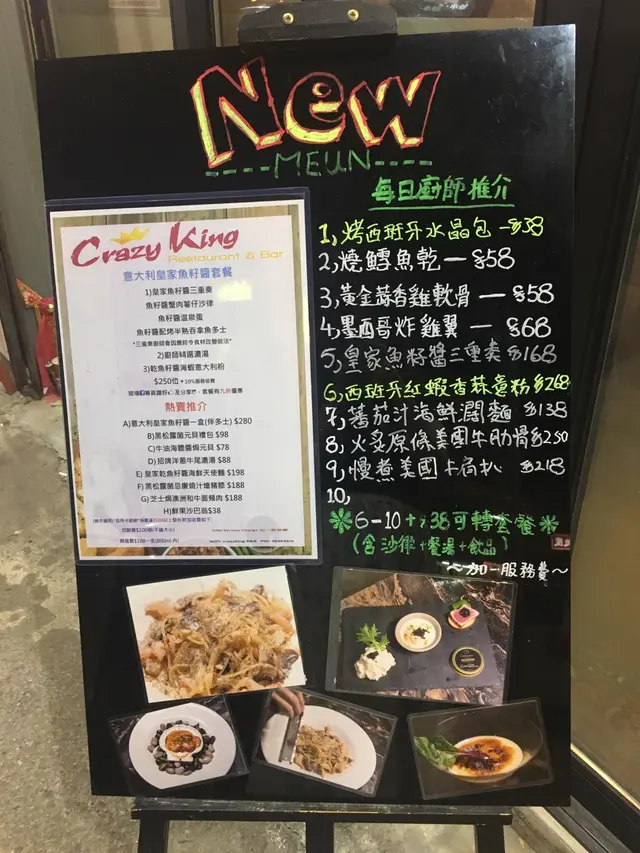 New
----MEUN----
每日廚師推介
1, 烤西班牙水晶包 -$38
2, 燒鱈魚乾 — $58
3, 黃金蒜香雞軟骨 — $58
4, 墨西哥炸雞翼 — $68
5, 皇家魚籽醬三重奏 $168
6, 西班牙紅蝦香蒜意粉 $268
7, 蕃茄汁海鮮濶麵 $138
8, 火炙原條美國牛肋骨 $250
9, 慢煮美國牛肩扒 $218
10,
6-10 + $38可轉套餐
(含沙律+餐湯+飲品)
~加一服務費~
Crazy King
Restaurant & Bar
意大利皇家魚籽醬套餐
1)皇家魚籽醬三重奏
魚籽醬蟹肉薯仔沙律
魚籽醬溫泉蛋
魚籽醬配烤半熟吞拿魚多士
*三重奏廚師會因應時令食材改變做法*
2)廚師精選濃湯
3)乾魚籽醬海蝦意大利粉
$250位 +10%服務收費
熱賣推介
A)意大利皇家魚籽醬一盒(伴多士) $280
B)黑松露菌元貝禮包 $98
C)牛油海膽醬焗元貝 $78
D) 招牌洋蔥牛尾濃湯 $88
E) 皇家乾魚籽醬海鮮天使麵 $198
F) 黑松露菌忌廉燒汁燴豬膝 $188
G)芝士焗澳洲和牛面頰肉 $188
H)鮮果沙巴翁$38